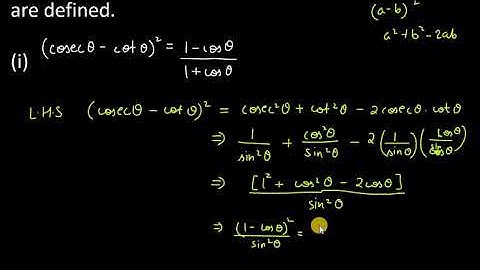 are defined.
(a-b)²
a²+b²-2ab
(i) (cosecθ - cotθ)² = 1-cosθ / 1+cosθ
L.H.S (cosecθ - cotθ)² = cosec²θ + cot²θ - 2cosecθ·cotθ
⇒ 1/sin²θ + cos²θ/sin²θ - 2(1/sinθ)(cosθ/sinθ)
⇒ [1² + cos²θ - 2cosθ] / sin²θ
⇒ (1-cosθ)²/sin²θ =